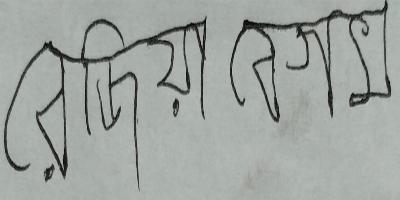 রেজিয়া বেগম